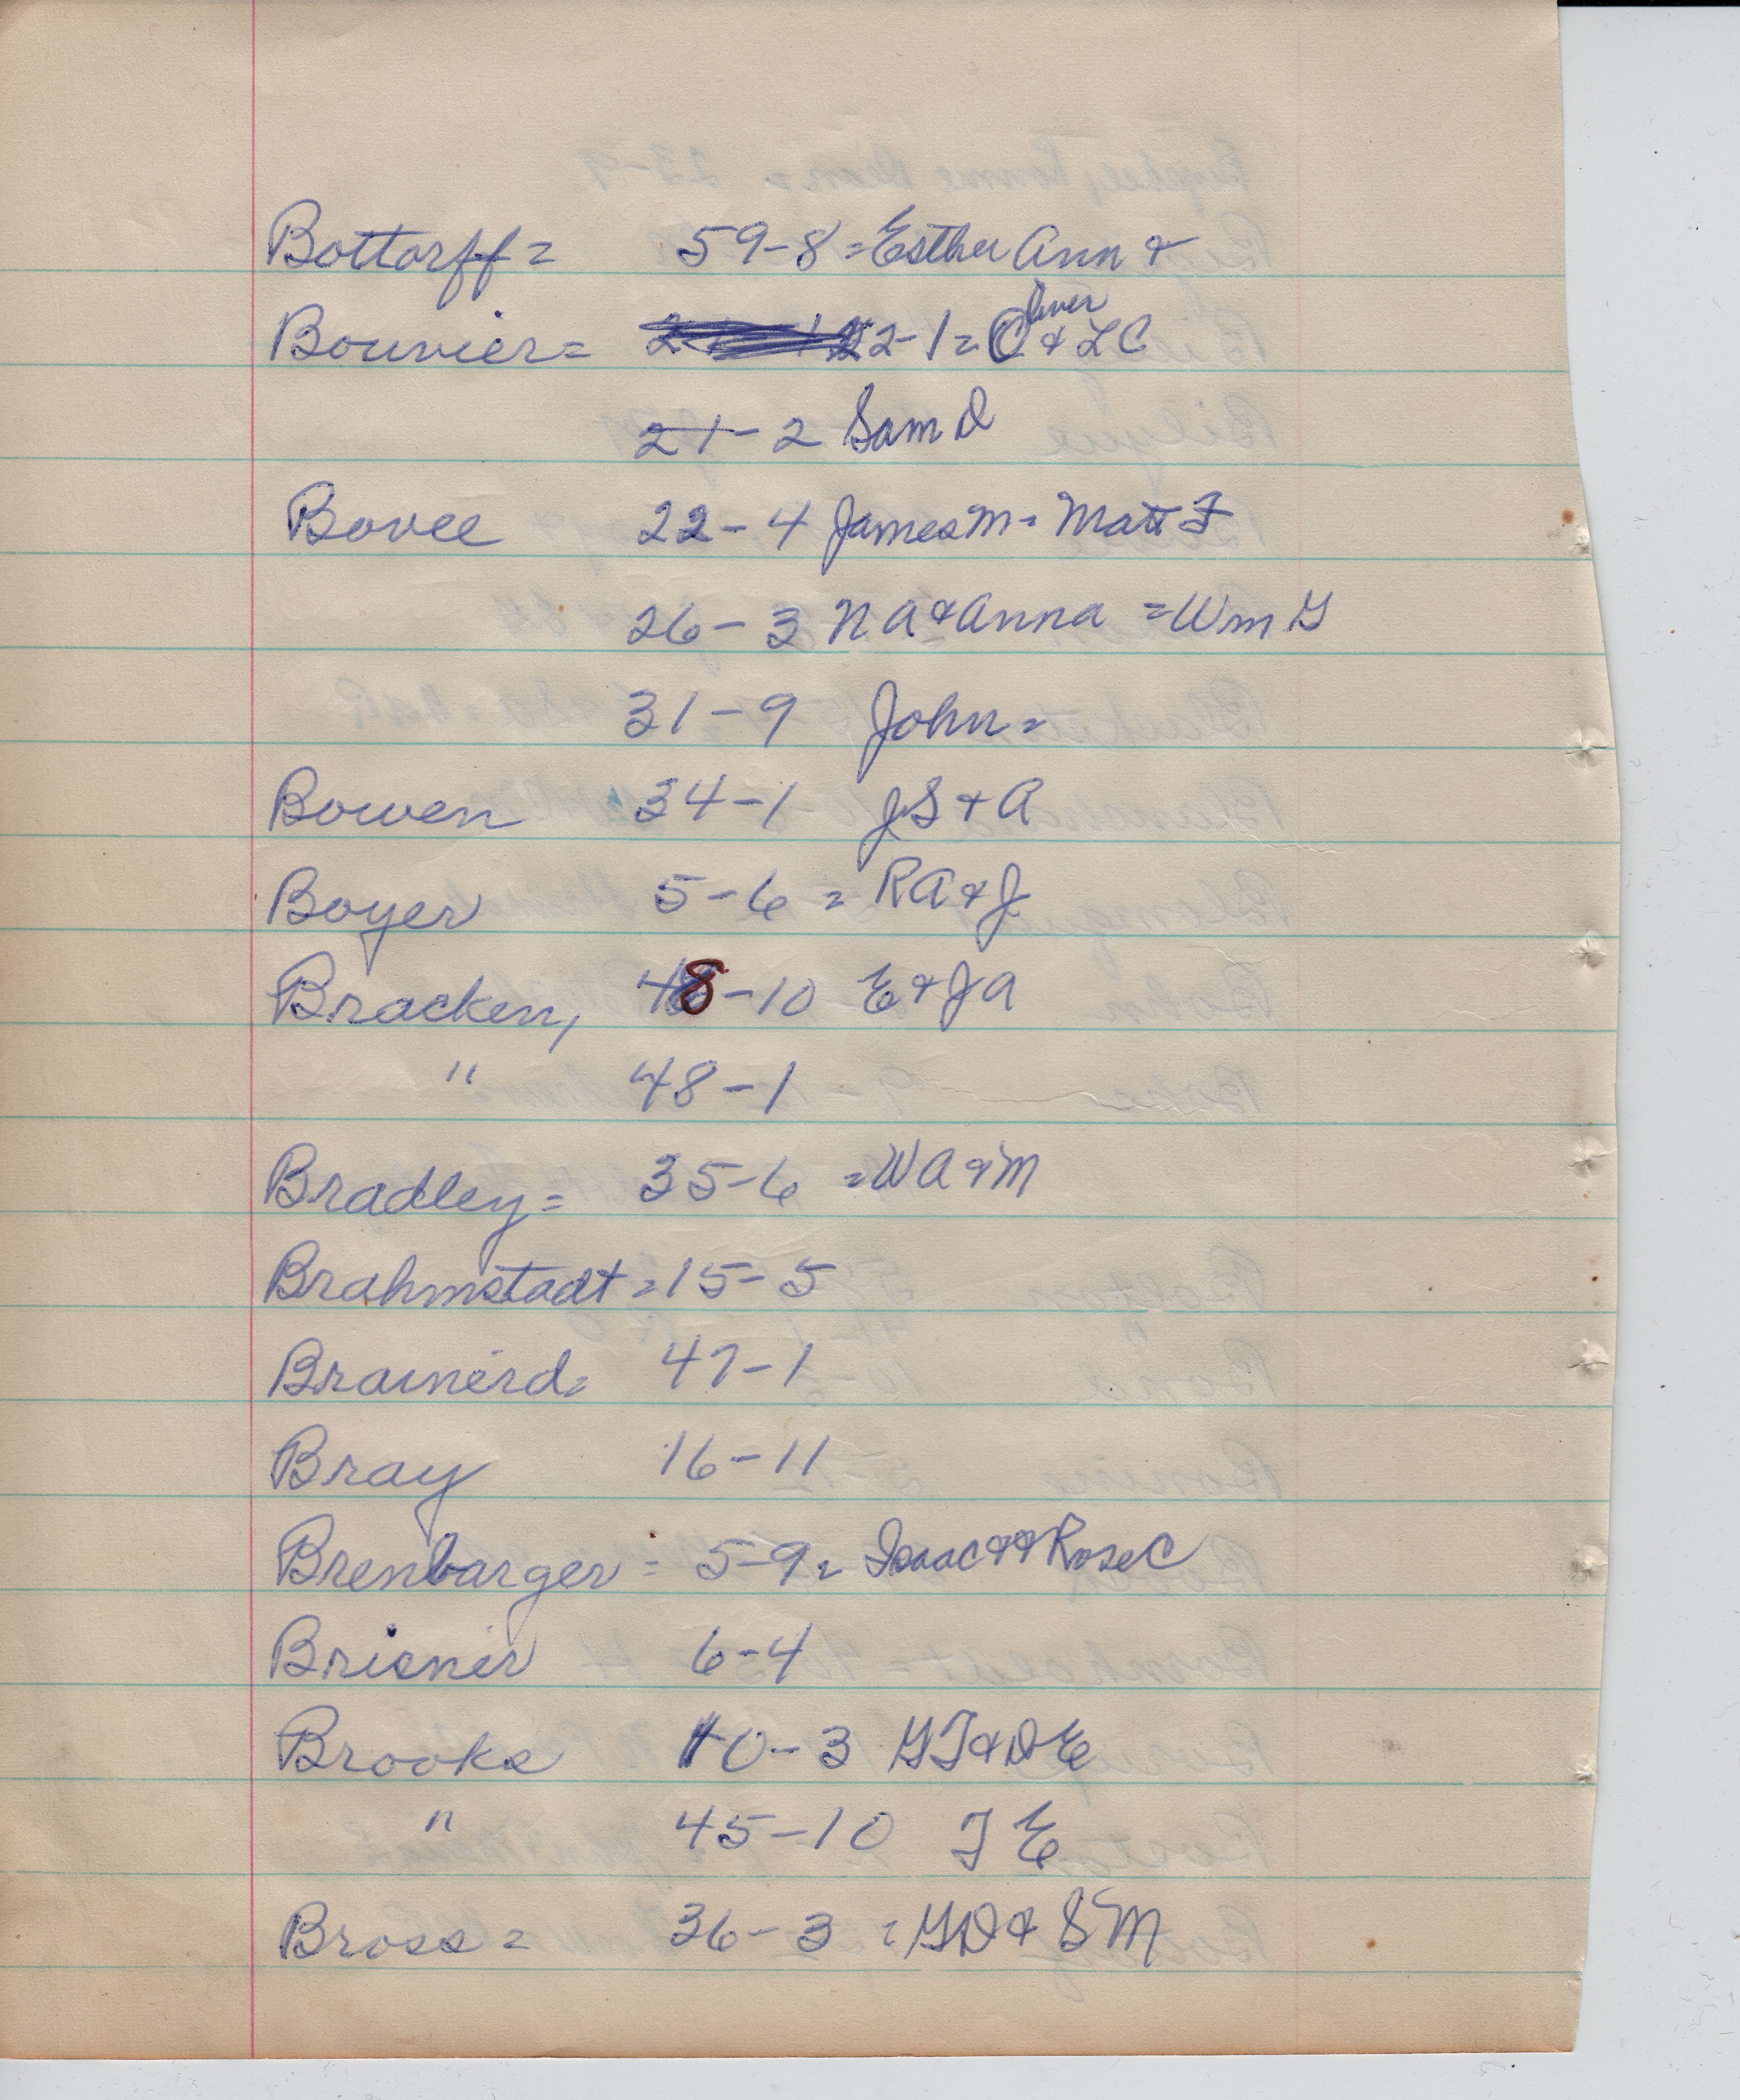 Bottorff = 59-8 = Esther Ann &
Bouvier = 22-1 = Oliver & LC
21-2 Sam D
Bovee 22-4 James M = Matt F
26-3 N A & Anna = Wm G
31-9 John =
Bowen 34-1 JS & A
Boyer 5-6 = RA & J
Bracken, 48-10 E & JA
" 48-1
Bradley = 35-6 = WA & M
Brahmstadt = 15-5
Brainerd = 47-1
Bray 16-11
Brenbarger = 5-9 = Isaac & & Rose C
Brisner 6-4
Brooks 10-3 GT & DE
" 45-10 T E
Bross = 36-3 = GD & SM